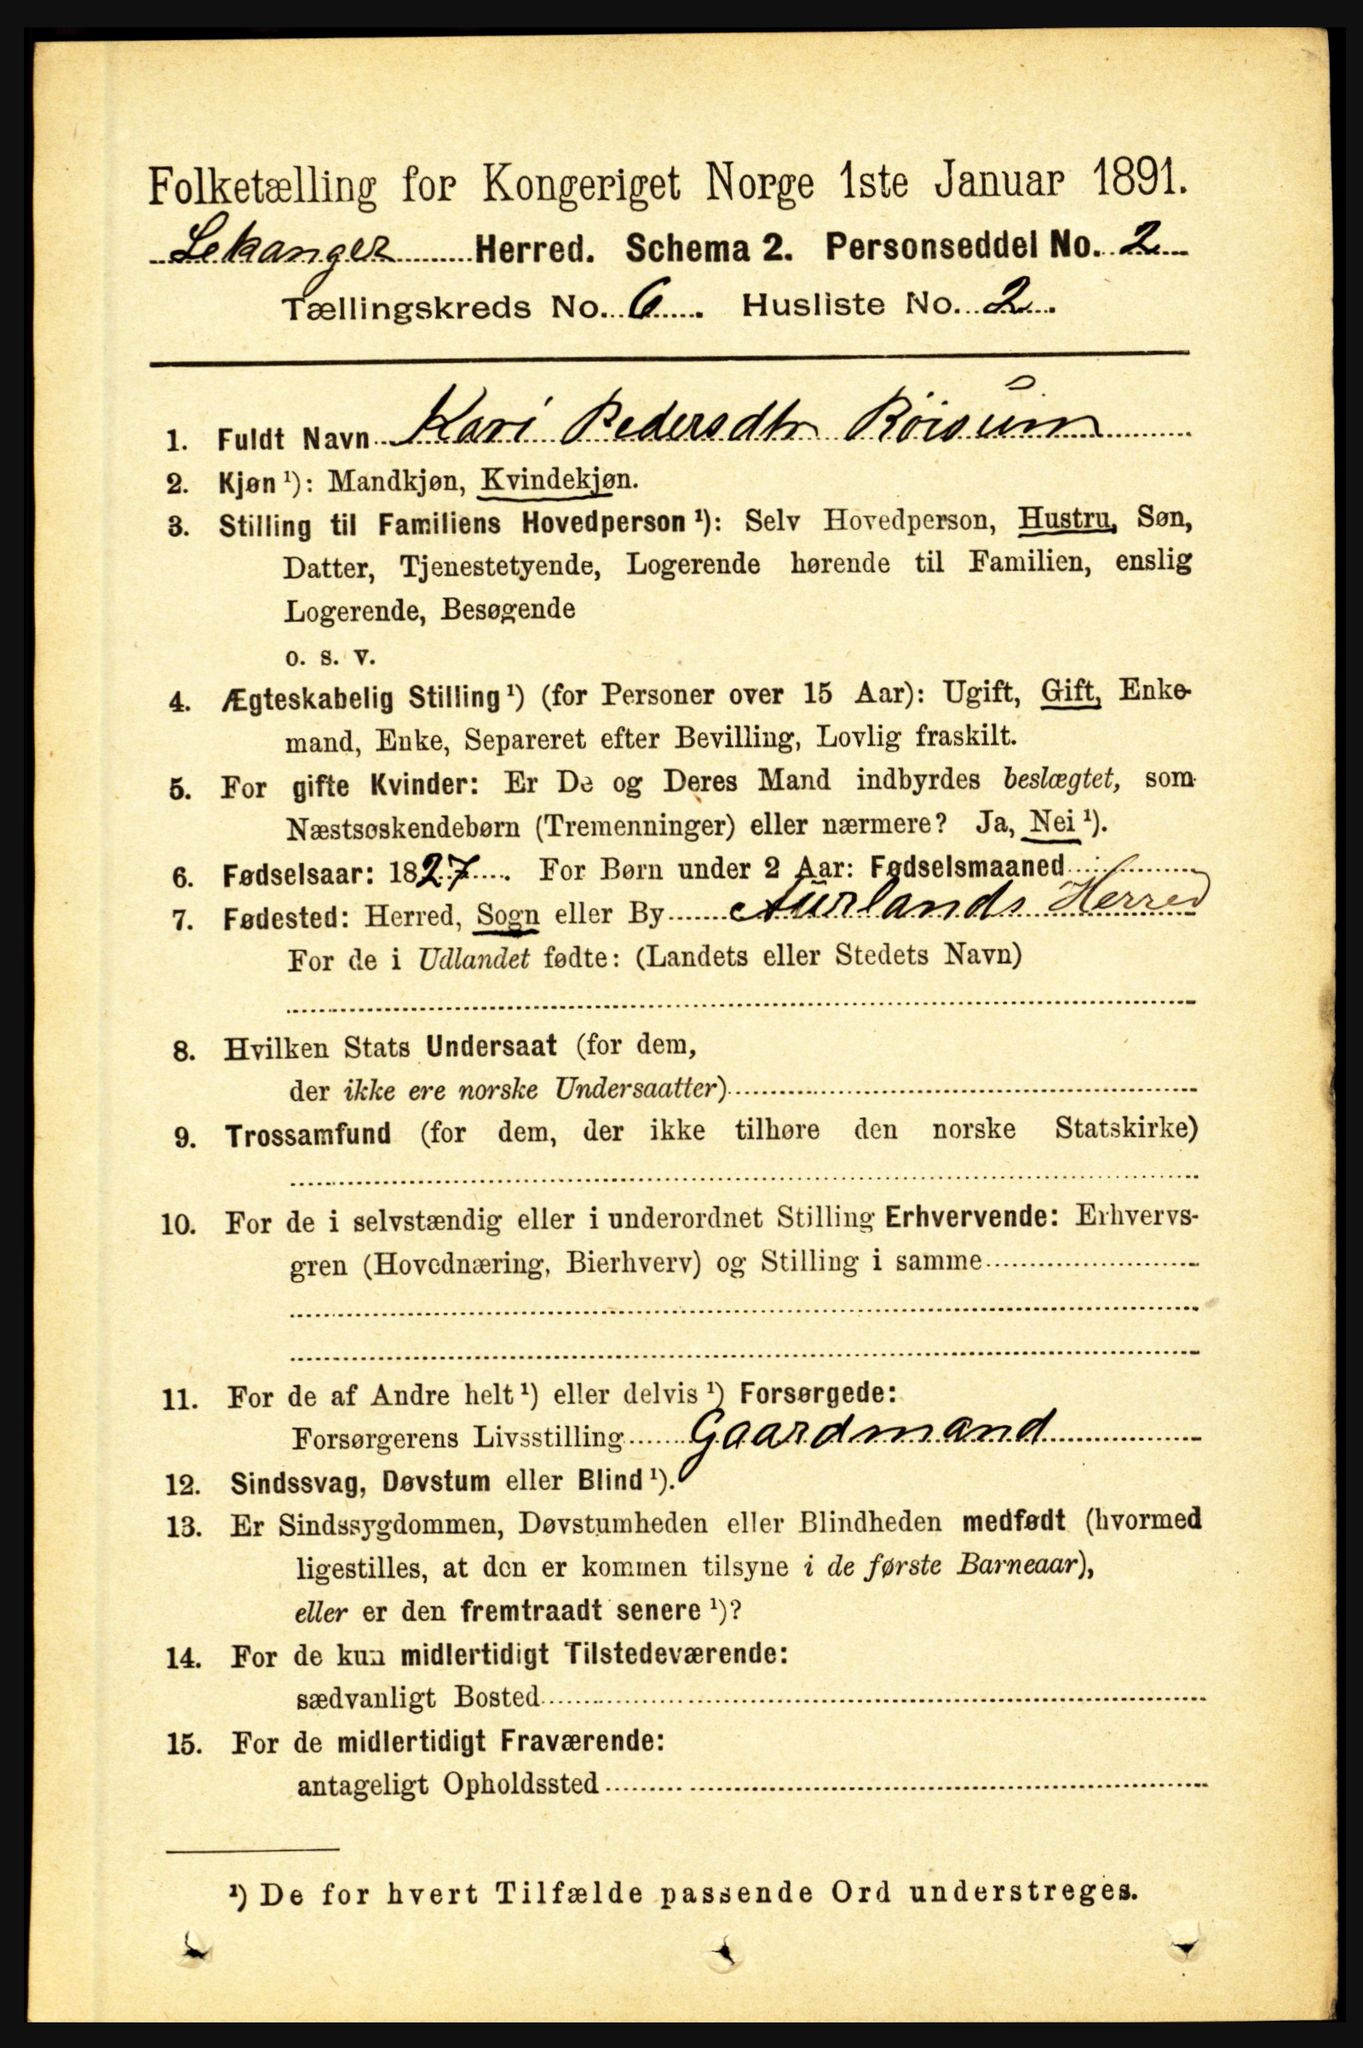 Folketælling for Kongeriget Norge 1ste Januar 1891.
Lekanger Herred. Schema 2. Personseddel No. 2
Tællingskreds No. 6. Husliste No. 2.
1. Fuldt Navn Kari Pedersdtr Röisum
2. Kjøn¹): Mandkjøn, Kvindekjøn.
3. Stilling til Familiens Hovedperson¹): Selv Hovedperson, Hustru, Søn,
Datter, Tjenestetyende, Logerende hørende til Familien, enslig
Logerende, Besøgende
o. s. v.
4. Ægteskabelig Stilling¹) (for Personer over 15 Aar): Ugift, Gift, Enke-
mand, Enke, Separeret efter Bevilling, Lovlig fraskilt.
5. For gifte Kvinder: Er De og Deres Mand indbyrdes beslægtet, som
Næstsøskendebørn (Tremenninger) eller nærmere? Ja, Nei¹).
6. Fødselsaar: 1827. For Børn under 2 Aar: Fødselsmaaned
7. Fødested: Herred, Sogn eller By Aurlands Herred
For de i Udlandet fødte: (Landets eller Stedets Navn)
8. Hvilken Stats Undersaat (for dem,
der ikke ere norske Undersaatter)
9. Trossamfund (for dem, der ikke tilhøre den norske Statskirke)
10. For de i selvstændig eller i underordnet Stilling Erhvervende: Erhvervs-
gren (Hovednæring, Bierhverv) og Stilling i samme
11. For de af Andre helt¹) eller delvis¹) Forsørgede:
Forsørgerens Livsstilling Gaardmand
12. Sindssvag, Døvstum eller Blind¹).
13. Er Sindssygdommen, Døvstumheden eller Blindheden medfødt (hvormed
ligestilles, at den er kommen tilsyne i de første Barneaar),
eller er den fremtraadt senere¹)?
14. For de kun midlertidigt Tilstedeværende:
sædvanligt Bosted
15. For de midlertidigt Fraværende:
antageligt Opholdssted
¹) De for hvert Tilfælde passende Ord understreges.